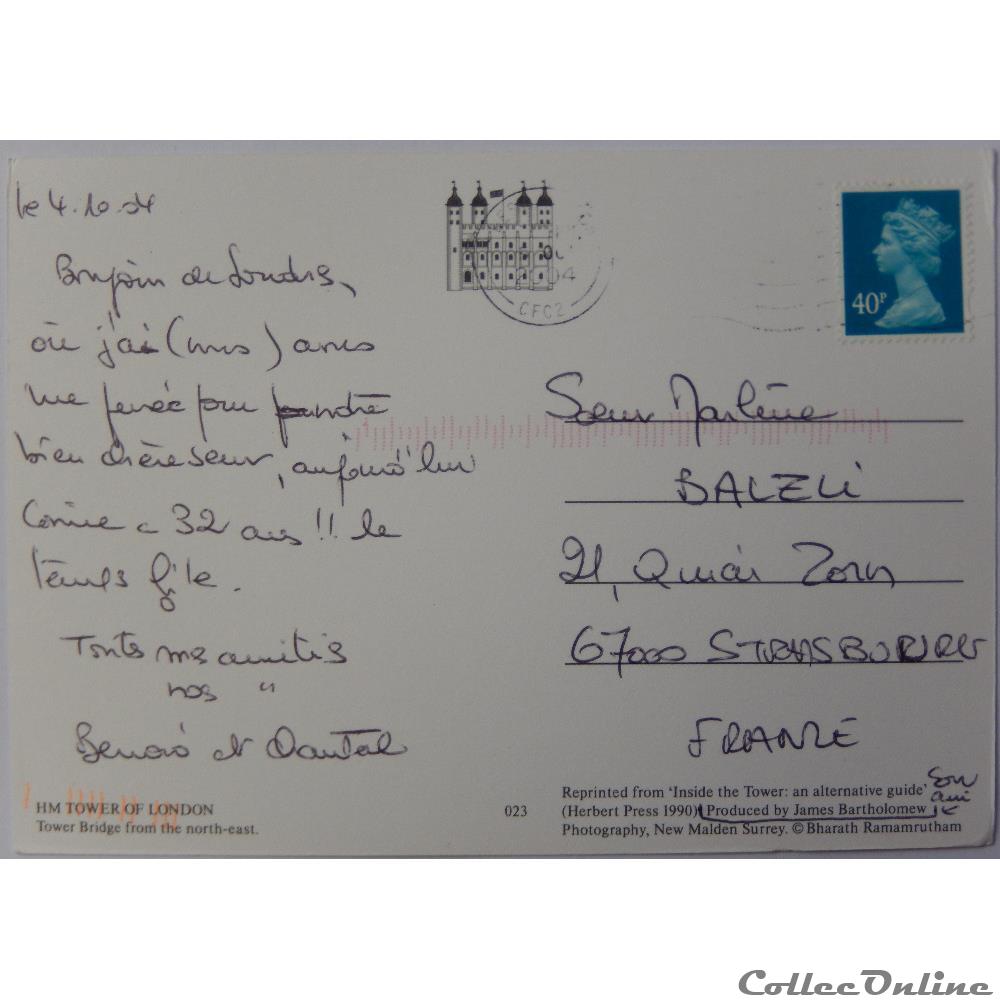 le 4.10.04
Bonjour de Londres,
où j'ai (nous) avons
une pensée pour
bien chère soeur, aujourd'hui
a 32 ans !! le
temps file.
Toutes mes amitiés
nos "
Benoît et Chantal
CFC2
2004
40P
Soeur Marlène
BALZLI
21, Quai Zorn
67000 STRASBOURG
FRANCE
HM TOWER OF LONDON
Tower Bridge from the north-east.
023
Reprinted from 'Inside the Tower: an alternative guide'
(Herbert Press 1990) Produced by James Bartholomew
Photography, New Malden Surrey. © Bharath Ramamrutham
Son
ami
CollecOnline